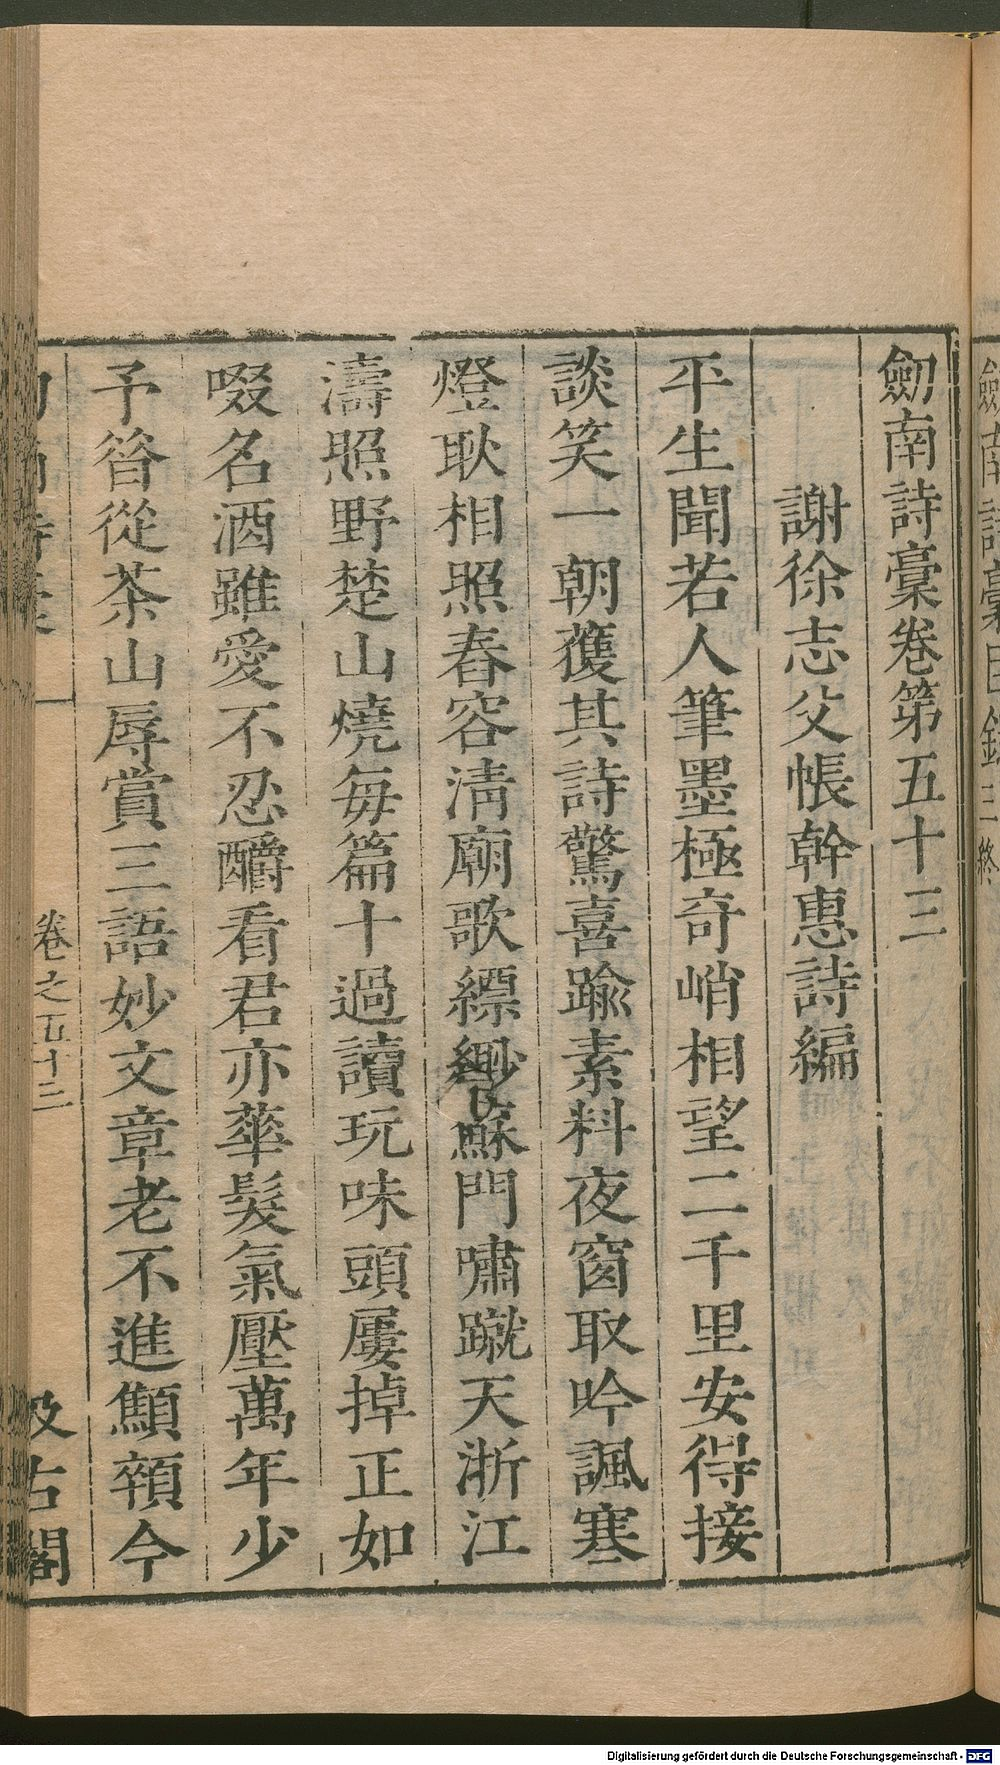 劒南詩稾卷第五十三
謝徐志父帳幹惠詩編
平生聞若人筆墨極奇峭相望二千里安得接
談笑一朝獲其詩驚喜踰素料夜窗取吟諷寒
燈耿相照舂容淸廟歌縹緲蘇門嘯蹴天浙江
濤照野楚山燒每篇十過讀玩味頭屢掉正如
啜名酒雖愛不忍釂看君亦華髮氣壓萬年少
予昝從茶山辱賞三語妙文章老不進顦顇今
卷之五十三
汲古閣
Digitalisierung gefördert durch die Deutsche Forschungsgemeinschaft - DFG